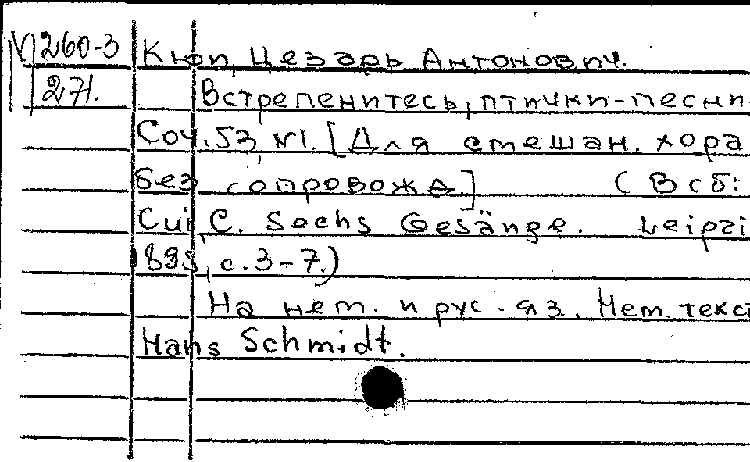 V 260-3 Кюи, Цезарь Антонович.
271. Встрепенитесь, птички-песни
Соч. 53, №1. [Для смешан. хора
без сопровожд] (В сб:
Cui C. Sechs Gesänge. Leipzi
1895, с. 3-7.)
На нем. и рус. яз. Нем. текст
Hans Schmidt.